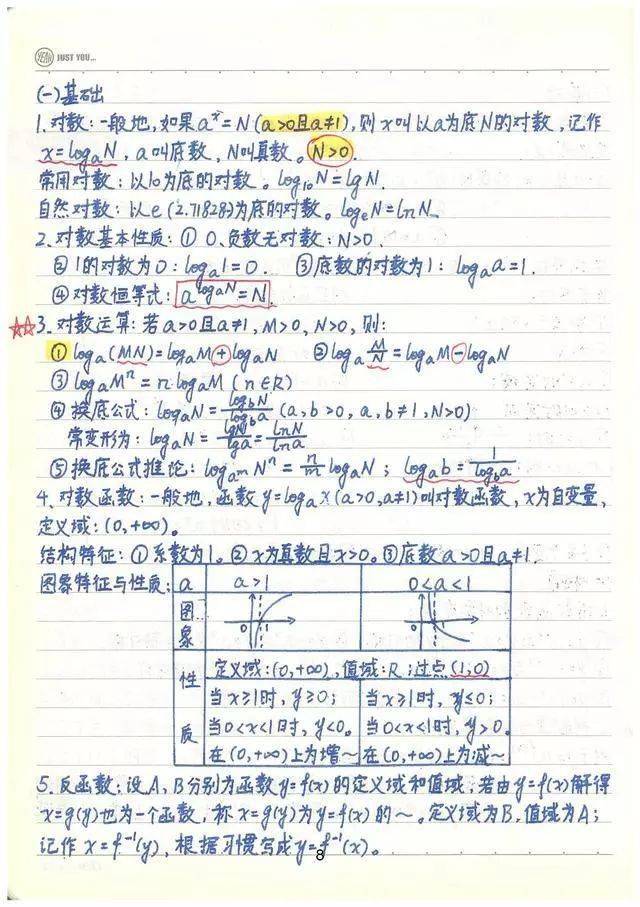 YEAH JUST YOU...
(一)基础
1.对数:一般地,如果aˣ=N(a>0且a≠1),则x叫以a为底N的对数,记作
x=logₐN,a叫底数,N叫真数。N>0.
常用对数:以10为底的对数。log₁₀N=lgN.
自然对数:以e(2.71828)为底的对数。logₑN=lnN.
2.对数基本性质:①0、负数无对数:N>0.
②1的对数为0:logₐ1=0. ③底数的对数为1:logₐa=1.
④对数恒等式:a^(logₐN)=N.
☆☆3.对数运算:若a>0且a≠1,M>0,N>0,则:
①logₐ(MN)=logₐM+logₐN ②logₐ(M/N)=logₐM-logₐN
③logₐMⁿ=n·logₐM(n∈R)
④换底公式:logₐN=(log_b N)/(log_b a)(a,b>0,a,b≠1,N>0)
常变形为:logₐN=lgN/lga=lnN/lna
⑤换底公式推论:log_(aᵐ)Nⁿ=(n/m)logₐN;logₐb=1/(log_b a)
4.对数函数:一般地,函数y=logₐx(a>0,a≠1)叫对数函数,x为自变量,
定义域:(0,+∞)。
结构特征:①系数为1。②x为真数且x>0。③底数a>0且a≠1.
图象特征与性质: a a>1 0<a<1
图象 0 1 0 1
性质 定义域:(0,+∞),值域:R;过点(1,0)
当x≥1时,y≥0; 当x≥1时,y≤0;
当0<x<1时,y<0。 当0<x<1时,y>0。
在(0,+∞)上为增~ 在(0,+∞)上为减~
5.反函数:设A,B分别为函数y=f(x)的定义域和值域,若由y=f(x)解得
x=g(y)也为一个函数,称x=g(y)为y=f(x)的~。定义域为B,值域为A;
记作x=f⁻¹(y),根据习惯写成y=f⁻¹(x)。
8